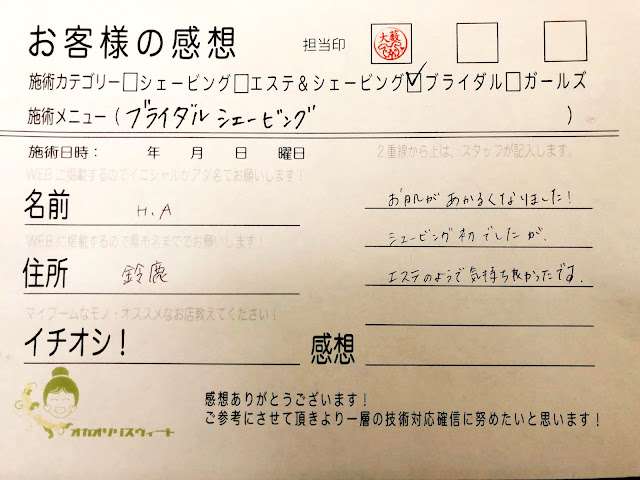 お客様の感想 担当印
施術カテゴリー□シェービング□エステ&シェービング☑ブライダル□ガールズ
施術メニュー(ブライダルシェービング)
施術日時: 年 月 日 曜日 2重線から上は、スタッフが記入します。
WEBに掲載するのでイニシャルかアダ名でお願いします!
名前 H.A
お肌があかるくなりました!
WEBに掲載するので県市名まででお願いします!
シェービング初でしたが、
住所 鈴鹿
エステのようで気持ち良かったです.
マイブームなモノ・オススメなお店教えてください!
イチオシ! 感想
感想ありがとうございます!
ご参考にさせて頂きより一層の技術対応確信に努めたいと思います!
オカオソリスウィート